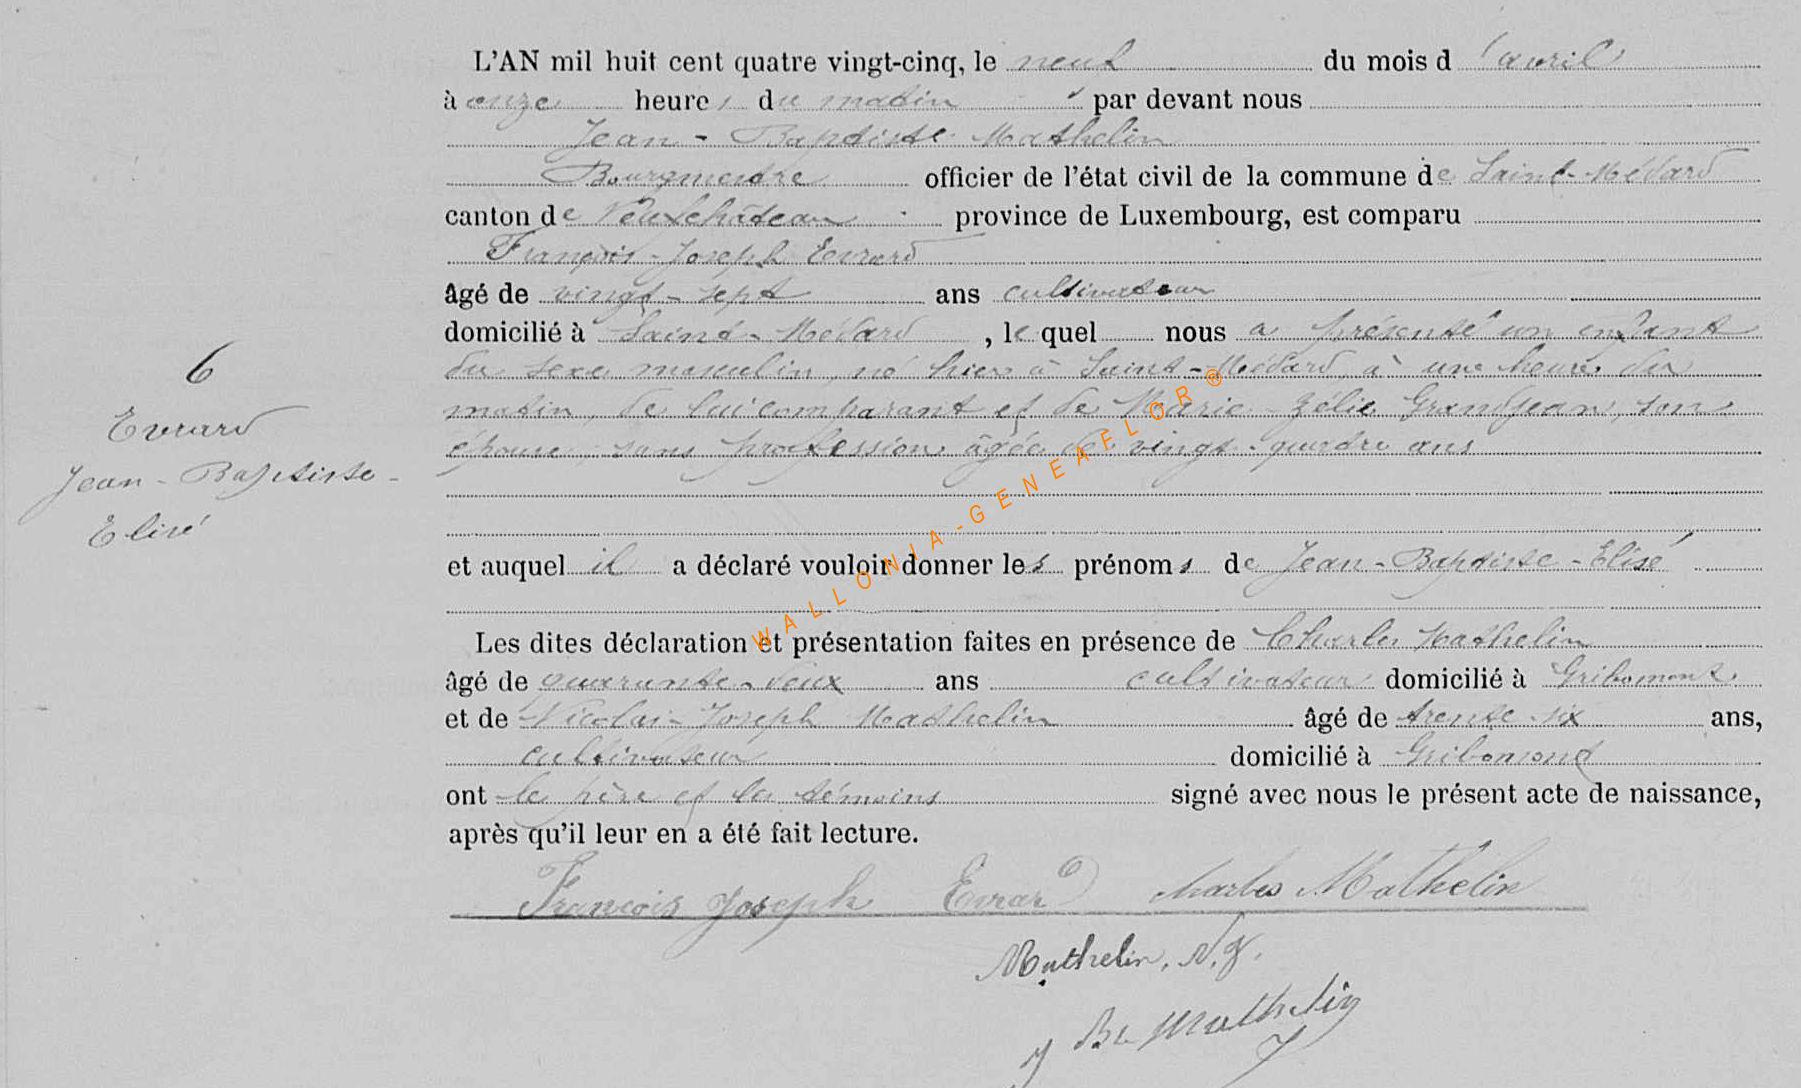 L'AN mil huit cent quatre vingt-cinq, le neuf du mois d'avril
à onze heures du matin par devant nous
Jean-Baptiste Mathelin
Bourgmestre officier de l'état civil de la commune de Saint-Médard
canton de Neufchâteau province de Luxembourg, est comparu
François-Joseph Evrard
âgé de vingt-sept ans cultivateur
domicilié à Saint-Médard, lequel nous a présenté un enfant
du sexe masculin, né hier à Saint-Médard, à une heure du
matin, de lui comparant et de Marie-Zélie Grandjean, son
épouse, sans profession âgée de vingt-quatre ans
et auquel il a déclaré vouloir donner les prénoms de Jean-Baptiste-Elisé
Les dites déclaration et présentation faites en présence de Charles Mathelin
âgé de quarante-deux ans cultivateur domicilié à Gribomont
et de Nicolas-Joseph Mathelin âgé de trente-six ans,
cultivateur domicilié à Gribomont
ont le père et les témoins signé avec nous le présent acte de naissance,
après qu'il leur en a été fait lecture.
François Joseph Evrard Charles Mathelin
Mathelin, N. J.
J Bte Mathelin
6
Evrard
Jean-Baptiste-
Elisé
WALLONIA-GENEAFLOR®